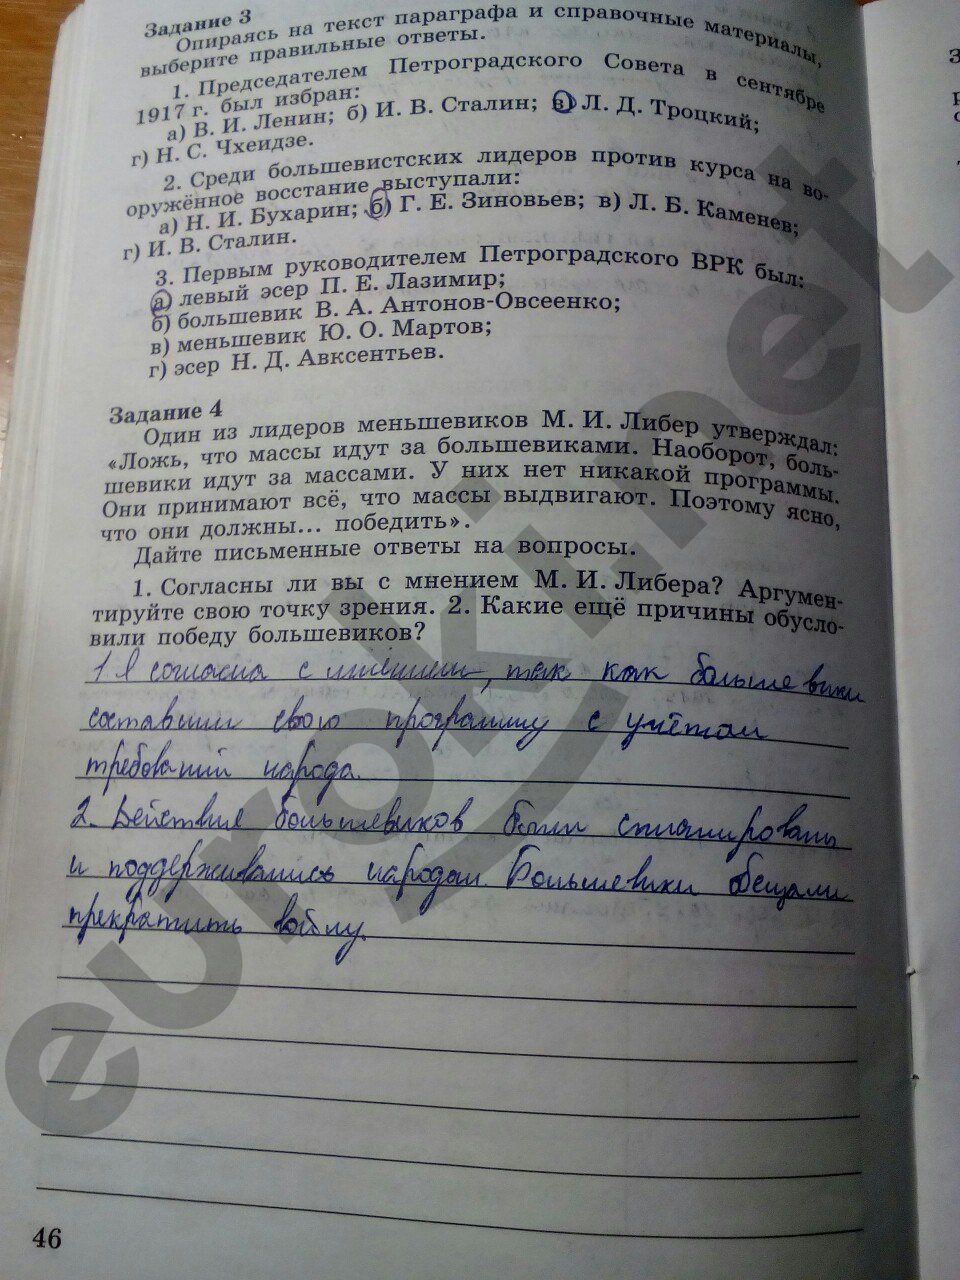 Задание 3
Опираясь на текст параграфа и справочные материалы,
выберите правильные ответы.
1. Председателем Петроградского Совета в сентябре
1917 г. был избран:
а) В. И. Ленин; б) И. В. Сталин; в) Л. Д. Троцкий;
г) Н. С. Чхеидзе.
2. Среди большевистских лидеров против курса на во-
оружённое восстание выступали:
а) Н. И. Бухарин; б) Г. Е. Зиновьев; в) Л. Б. Каменев;
г) И. В. Сталин.
3. Первым руководителем Петроградского ВРК был:
а) левый эсер П. Е. Лазимир;
б) большевик В. А. Антонов-Овсеенко;
в) меньшевик Ю. О. Мартов;
г) эсер Н. Д. Авксентьев.
Задание 4
Один из лидеров меньшевиков М. И. Либер утверждал:
«Ложь, что массы идут за большевиками. Наоборот, боль-
шевики идут за массами. У них нет никакой программы.
Они принимают всё, что массы выдвигают. Поэтому ясно,
что они должны... победить».
Дайте письменные ответы на вопросы.
1. Согласны ли вы с мнением М. И. Либера? Аргумен-
тируйте свою точку зрения. 2. Какие ещё причины обусло-
вили победу большевиков?
1. Я согласна с мнением, так как большевики
составили свою программу с учётом
требований народа.
2. Действия большевиков были спланированы
и поддерживались народом. Большевики обещали
прекратить войну.
46
euroki.net